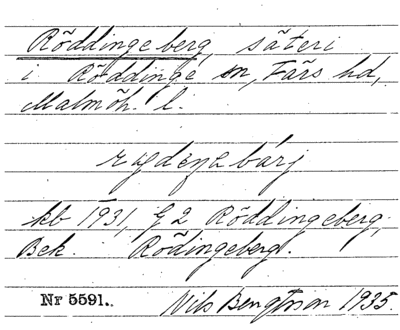 Röddingeberg, säteri
i Röddinge sn, Färs hd,
Malmöh. l.
kb 1931, G 2 Röddingeberg,
Bek. Rödingeberg.
Nr 5591. Nils Bengtsson 1935.